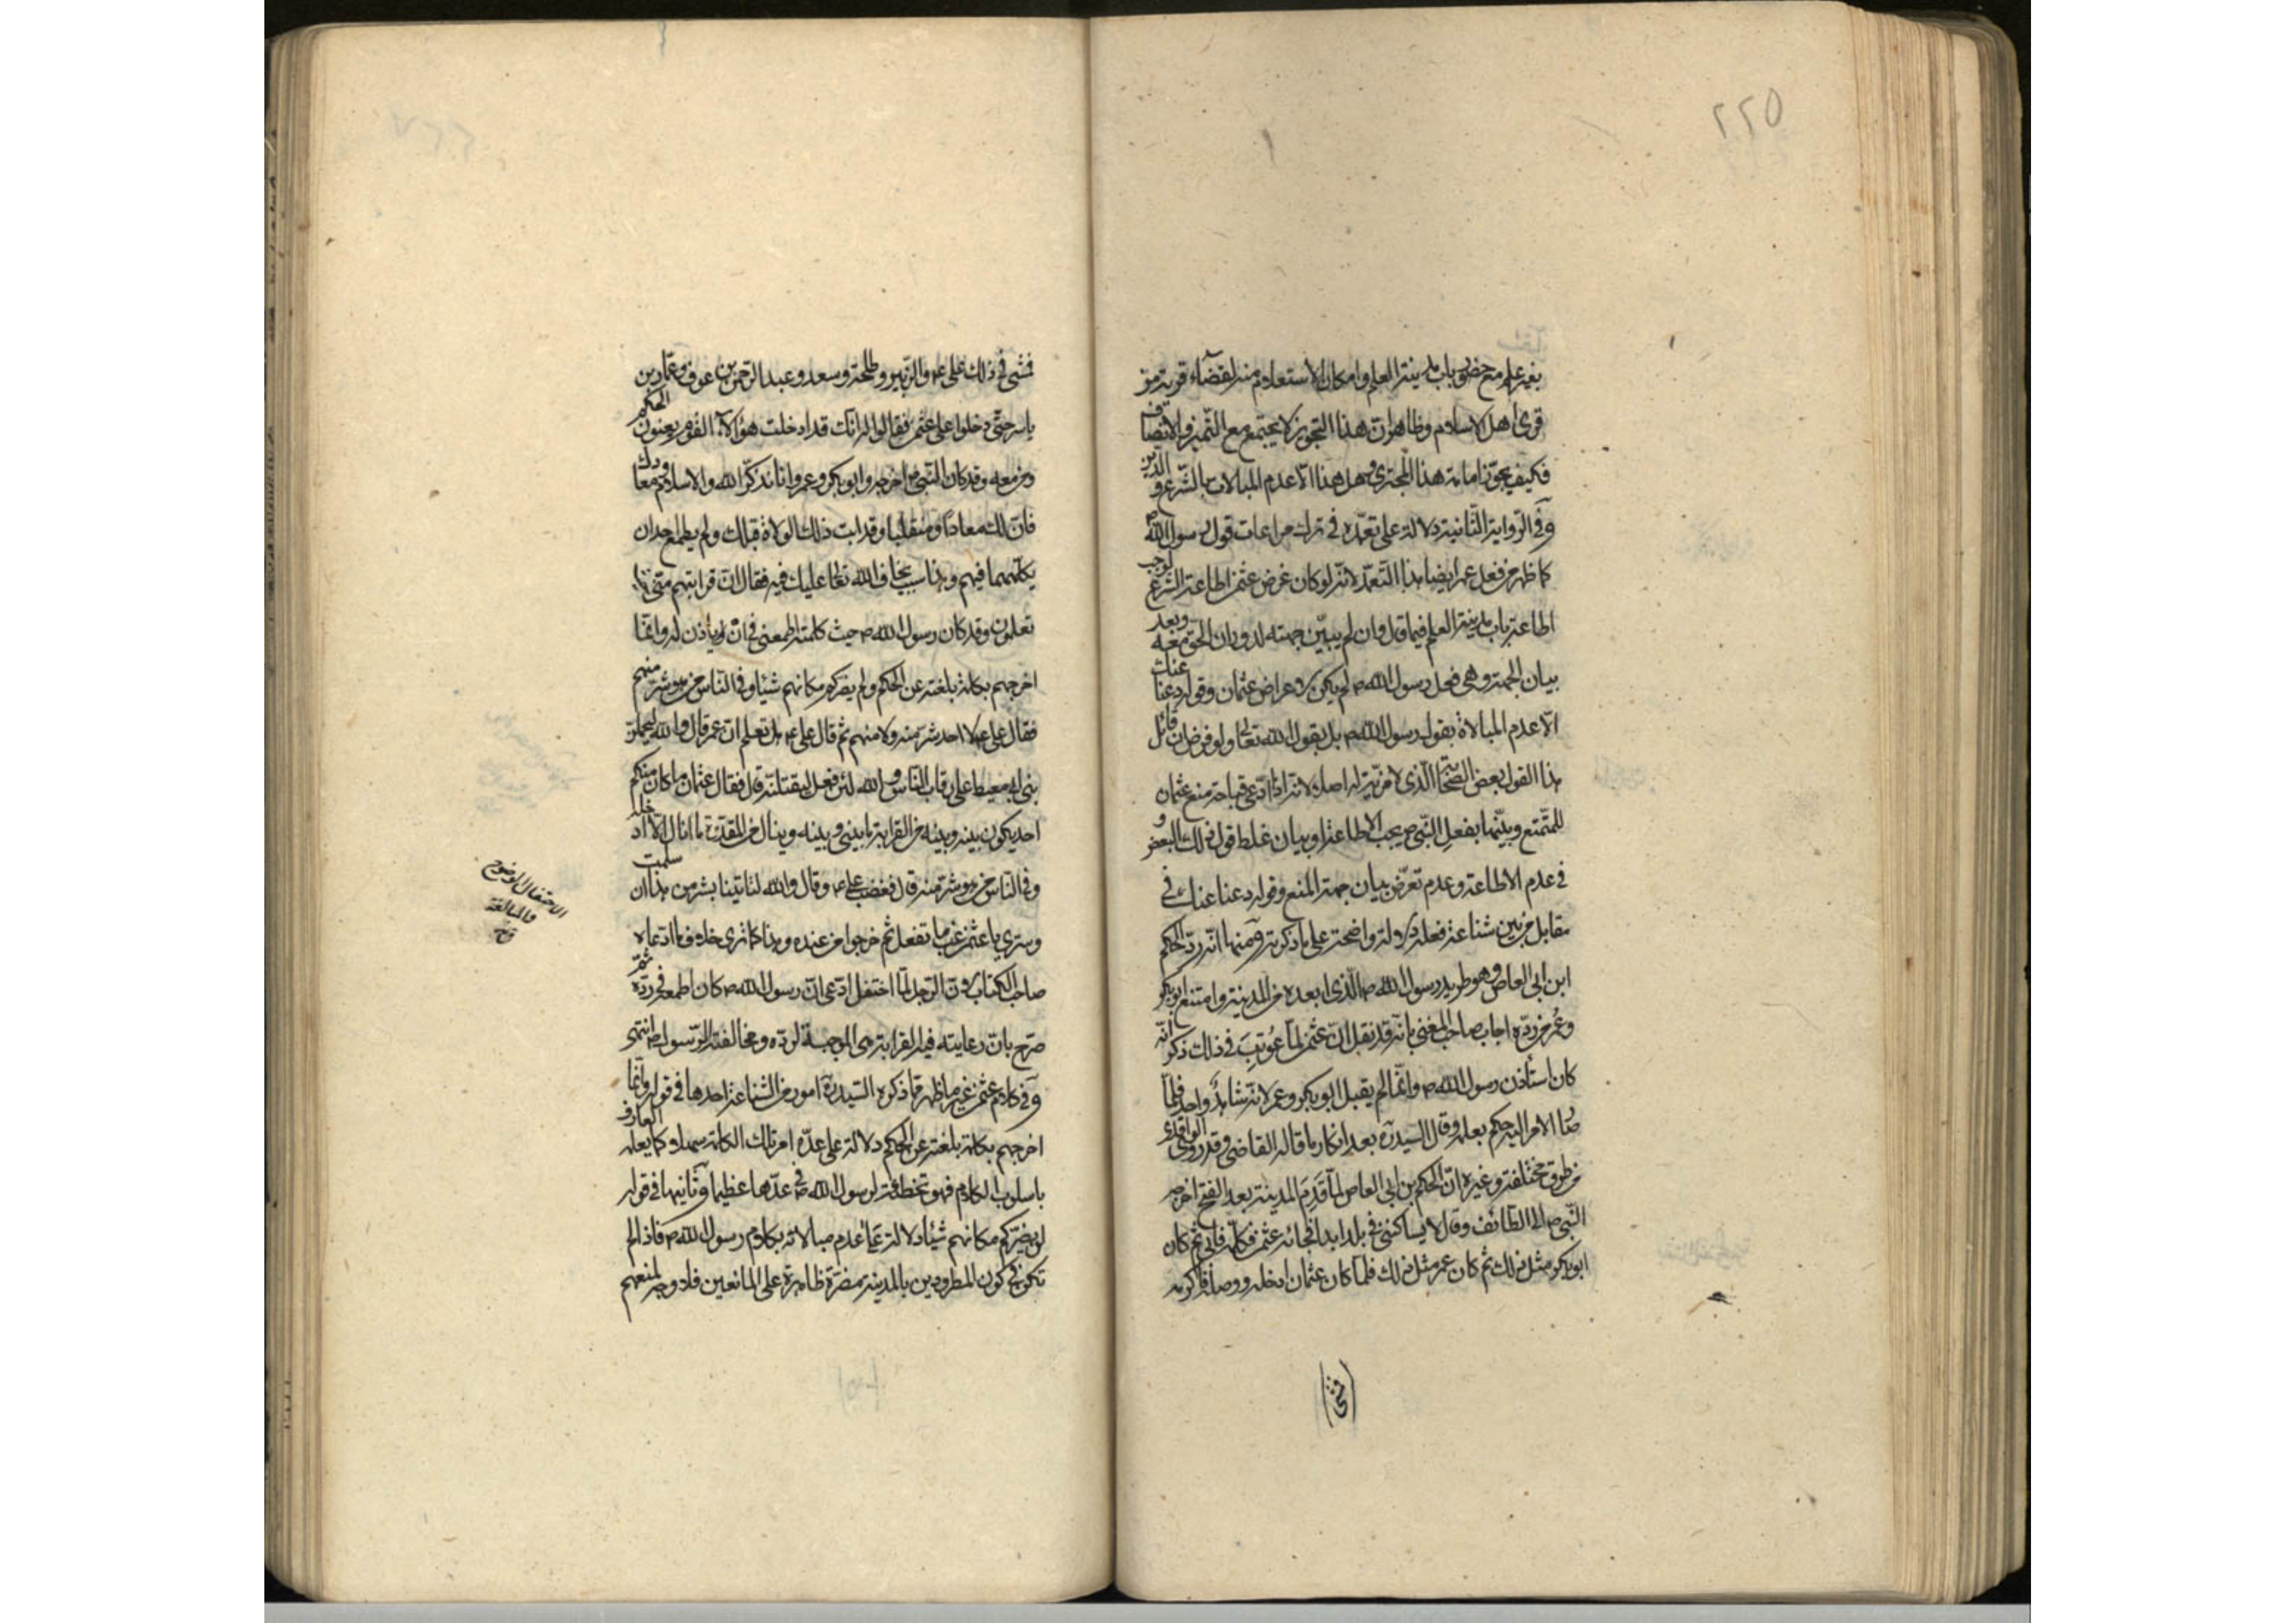 ٢٢٥
بغير علم مع حضور باب مدينة العلم وامكان الاستعلام منه لقضاء قرية من
قرى اهل الاسلام وظاهر ان هذا التجويز لا يجتمع مع التميز والاتصاف
فكيف يجوز امامة هذا المجترى وهل هذا الا عدم المبالات بالشرع والدين
وفى الرواية الثانية دلالة على تعمّده فى ترك مراعات قول رسول الله ص
كما ظهر من فعل عمر ايضا هذا التعمد لانه لو كان غرض عثمن اطاعة الشرع لوجب
اطاعة باب مدينة العلم فيما قال وان لم يبيّن جهته لدوران الحق معه وبعد
بيان الجهة وهى فعل رسول الله ص لم يكن لاعراض عثمان وقوله دعنا عنك
الّا عدم المبالاة بقول رسول الله ص بل بقول الله تعالى ولو فرض ان قائل
هذا القول بعض الصحابة الّذى لا مزيّة له اصلا لانه اذا ادعى قباحة منع عثمان
للمتمتع وبيّنها بفعل النّبى ص يجب الاطاعة او بيان غلط قول ذلك البعض و
فى عدم الاطاعة وعدم تعرّض بيان جهة المنع وقوله دعنا عنك فى
مقابل من بين شناعة فعله دلالة واضحة على ما ذكرته ومنها انّه ردّ الحكم
ابن ابى العاص وهو طريد رسول الله ص الّذى ابعده من المدينة وامتنع ابو بكر
وعمر من ردّه اجاب صاحب المغنى بانّه قد نقل انّ عثمن لمّا عُوتِبَ فى ذلك ذكر انّه
كان استأذن رسول الله ص وانّما لم يقبل ابو بكر وعمر لانّه شاهد واحد فلمّا
صا الامر اليه حكم بعلمه وقال السيد ره بعد انكار ما قاله القاضى وقد روى الواقدى
من طرق مختلفة وغيره انّ الحكم بن ابى العاص لمّا قَدِمَ المدينة بعد الفتح اخرجه
النّبى ص الى الطائف وقال لا يساكننى فى بلد ابدا فجائه عثمن فكلّمه فابى ثم كان
ابو بكر مثل ذلك ثم كان عمر مثل ذلك فلمّا كان عثمان ادخله ووصله واكرمه
(فمشى)
فمشى فى ذلك على ع والزّبير وطلحة وسعد وعبد الرّحمن بن عوف وعمّار بن
ياسر حتّى دخلوا على عثمن فقالوا له انّك قد ادخلت هؤلاء القوم يعنون الحكم
ومن معه وقد كان النّبى ص اخرجه وابو بكر وعمر وانا نذكّرك الله والاسلام ومعادك
فانّ لك معادًا ومنقلبا وقد ابت ذلك الولاة قبلك ولم يطمع احد ان
يكلّمهما فيهم وهذا سبب نخاف الله تعالى عليك فيه فقال انّ قرابتهم منّى ما
تعلمون وقد كان رسول الله ص حيث كلمته اطمعنى فى ان يأذن له وانّما
اخرجهم بكلمة بلغته عن الحكم ولم يضركم مكانهم شيئا وفى الناس من هو شرّ منهم
فقال على ع لا احد شرّ منه ولا منهم ثم قال على ع هل تعلم انّ عمر قال والله ليحملنّ
بنى ابى معيط على رقاب النّاس والله لئن فعل ليقتلنّه قال فقال عثمان ما كان منكم
احد يكون بينه وبينه من القرابة ما بينى وبينه وينال من المقدرة ما انال الّا ادخله
وفى الناس من هو شرّ منه قال فغضب على ع وقال والله لتاتينا بشر من هذا ان سلمت
وسترى يا عثمن غب ما تفعل ثم خرجوا من عنده وهذا كما ترى خلاف ما ادّعاه
صاحب الكتاب لانّ الرّجل لمّا احتفل ادّعى انّ رسول الله ص كان اطمعه فى ردّه ثمّ
صرّح بانّ رعايته فيه القرابة هى الموجبة لردّه ومخالفته الرّسول ص انتهى
وفى كلام عثمن غير ما ظهر ممّا ذكره السيد ره امور من الشناعة احدها فى قوله وانّما
اخرجهم بكلمة بلغته عن الحكم دلالة على عدّه امر تلك الكلمة سهلا كما يعلمه العارف
باسلوب الكلام فهو تخطئة لرسول الله ص فى عدّها عظيما وثانيها فى قوله
لم يضرّكم مكانهم شيئا دلالة على عدم مبالاته بكلام رسول الله ص فاذا لم
تكن فى كون المطرودين بالمدينة مضرّة ظاهرة على المانعين فلا وجه لمنعهم
الاحتفال الوضوح
والمبالغة